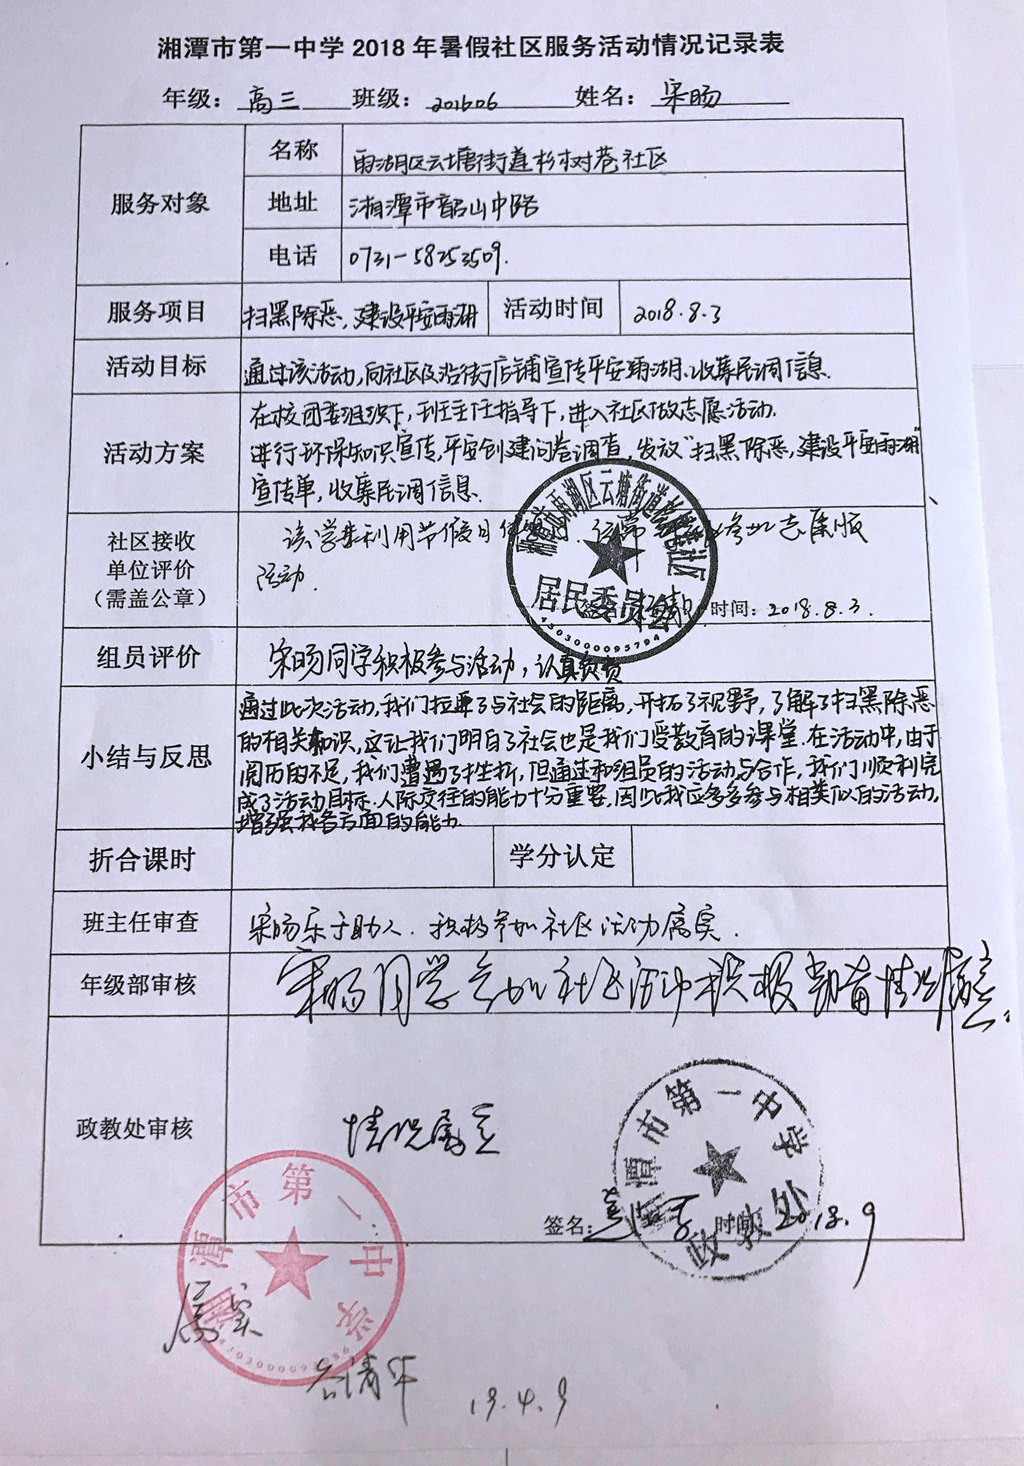 湘潭市第一中学 2018 年暑假社区服务活动情况记录表
年级: 高三 班级: 201606 姓名: 宋旸
服务对象
名称 雨湖区云塘街道杉树巷社区
地址 湘潭市韶山中路
电话 0731-58253509.
服务项目 扫黑除恶,建设平安雨湖 活动时间 2018.8.3
活动目标 通过该活动,向社区及沿街店铺宣传平安雨湖.收集民调信息.
活动方案
在校团委组织下,班主任指导下,进入社区做志愿活动.
进行环保知识宣传,平安创建问卷调查,发放"扫黑除恶,建设平安雨湖"
宣传单,收集民调信息.
社区接收
单位评价
(需盖公章)
该学生利用节假日
活动.
时间: 2018.8.3.
湘潭市雨湖区云塘街道杉树巷社区
居民委员会
组员评价 宋旸同学积极参与活动,认真负责
小结与反思
通过此次活动,我们拉近了与社会的距离,开拓了视野,了解了扫黑除恶
的相关知识,这让我们明白了社会也是我们受教育的课堂.在活动中,由于
阅历的不足,我们遭遇了挫折,但通过和组员的活动与合作,我们顺利完
成了活动目标.人际交往的能力十分重要,因此我应多多参与相类似的活动,
增强我各方面的能力.
折合课时 学分认定
班主任审查 宋旸乐于助人.积极参加社区活动属实.
年级部审核 宋旸同学参加社区活动积极
政教处审核 情况属实
湘潭市第一中学
政教处
签名: 时间: 2018.9
湘潭市第一中学
属实
19.4.9